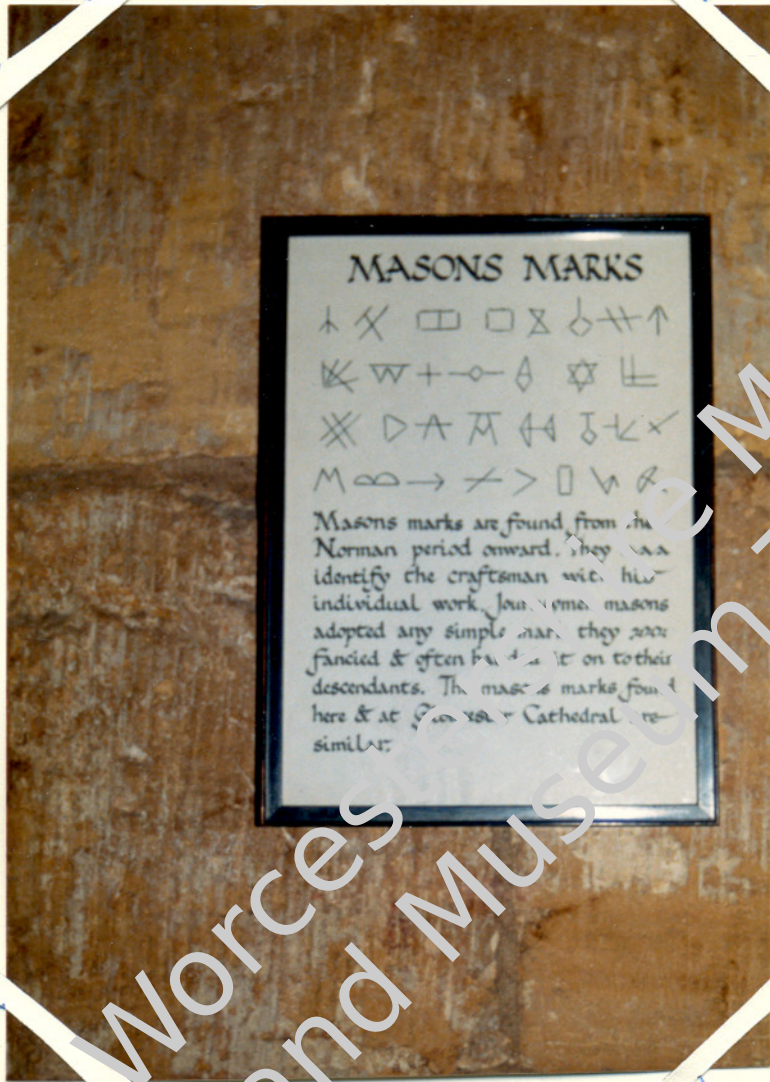 MASONS MARKS
Masons marks are found from the
Norman period onward. They
identify the craftsman with his
individual work. Journeymen masons
adopted any simple mark they
fancied & often handed it on to their
descendants. The masons marks found
here & at Gloucester Cathedral are
similar.
Worcestershire M
and Museum